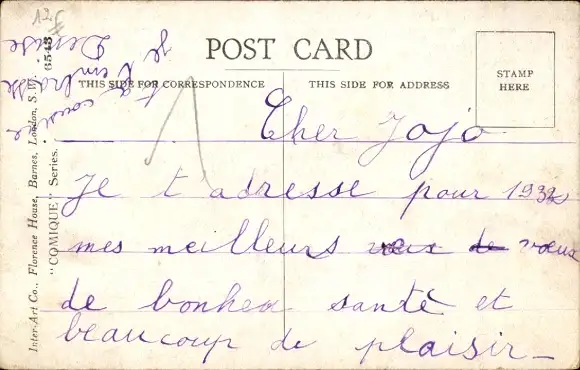 POST CARD
THIS SIDE FOR CORRESPONDENCE
THIS SIDE FOR ADDRESS
STAMP
HERE
Cher Jojo
Je t'adresse pour 193
mes meilleurs de vœux
de bonheu santé et
beaucoup de plaisir
je t'embrasse
ta cousine
Denise
Inter-Art Co., Florence House, Barnes, London, S.W.
"COMIQUE" Series. 6543